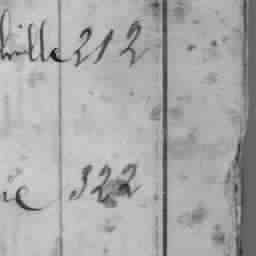 hville 212
ie 322